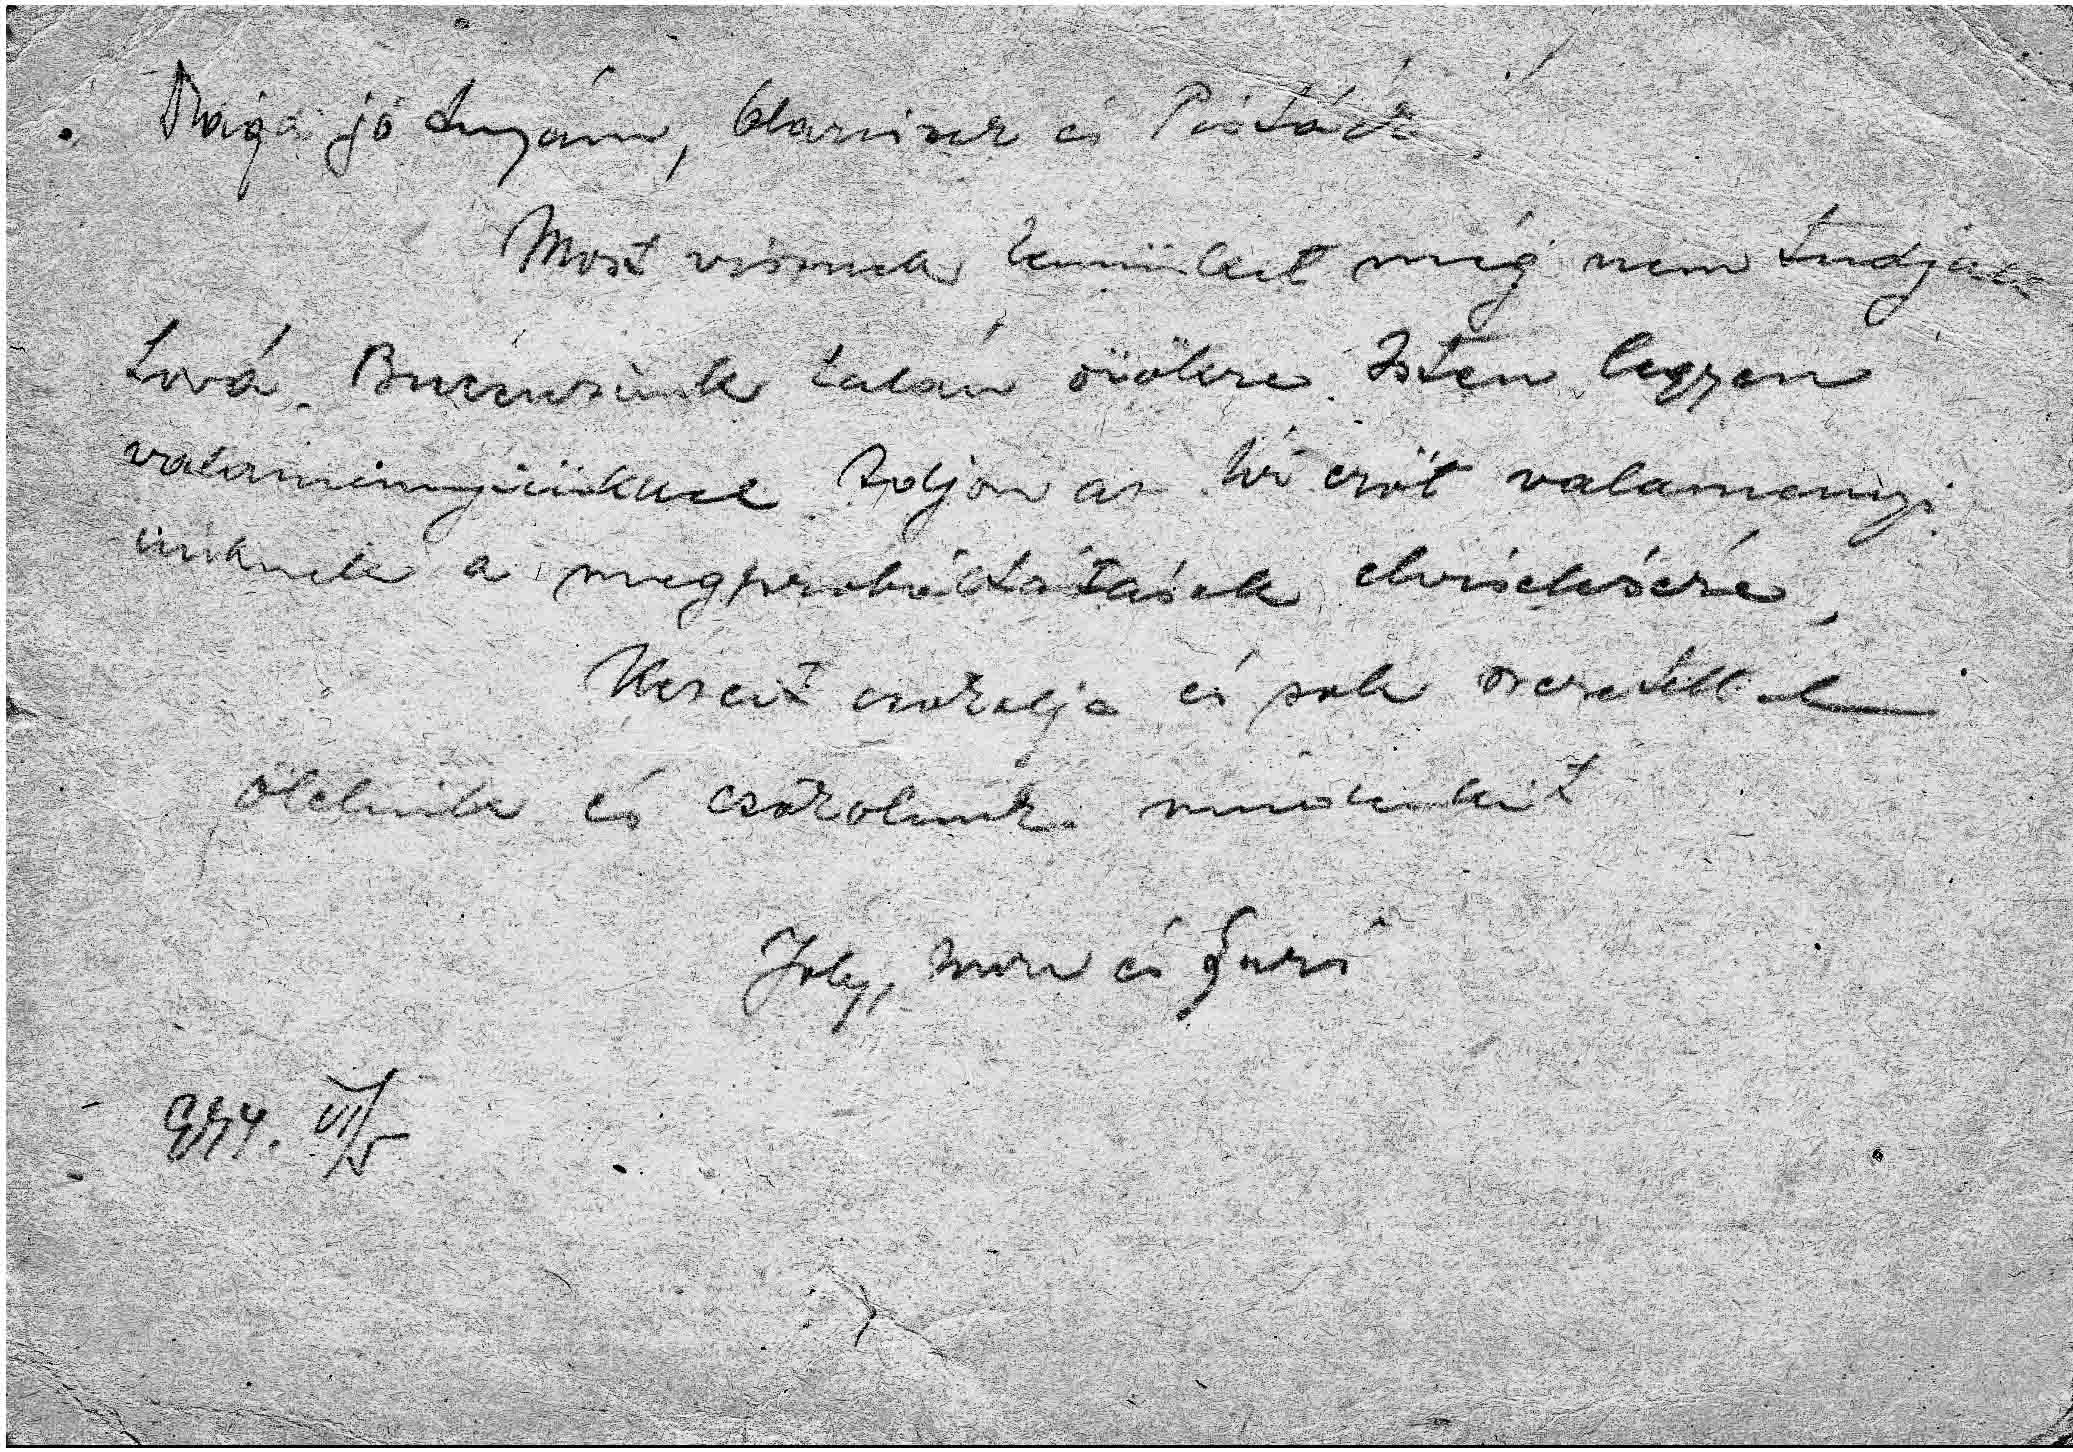 Drága jó Anyám, Klarisek és Pistáék!
Most visznek bennünket még nem tudjuk
hová. Búcsúzunk talán örökre. Isten legyen
valamennyiükkel. Adjon az Úr erőt valamennyi-
ünknek a megpróbáltatások elviselésére.
Kezeit csókolja és sok szeretettel
ölelünk és csókolunk mindenkit
Joly, és Zsuzsi
944. VII/5